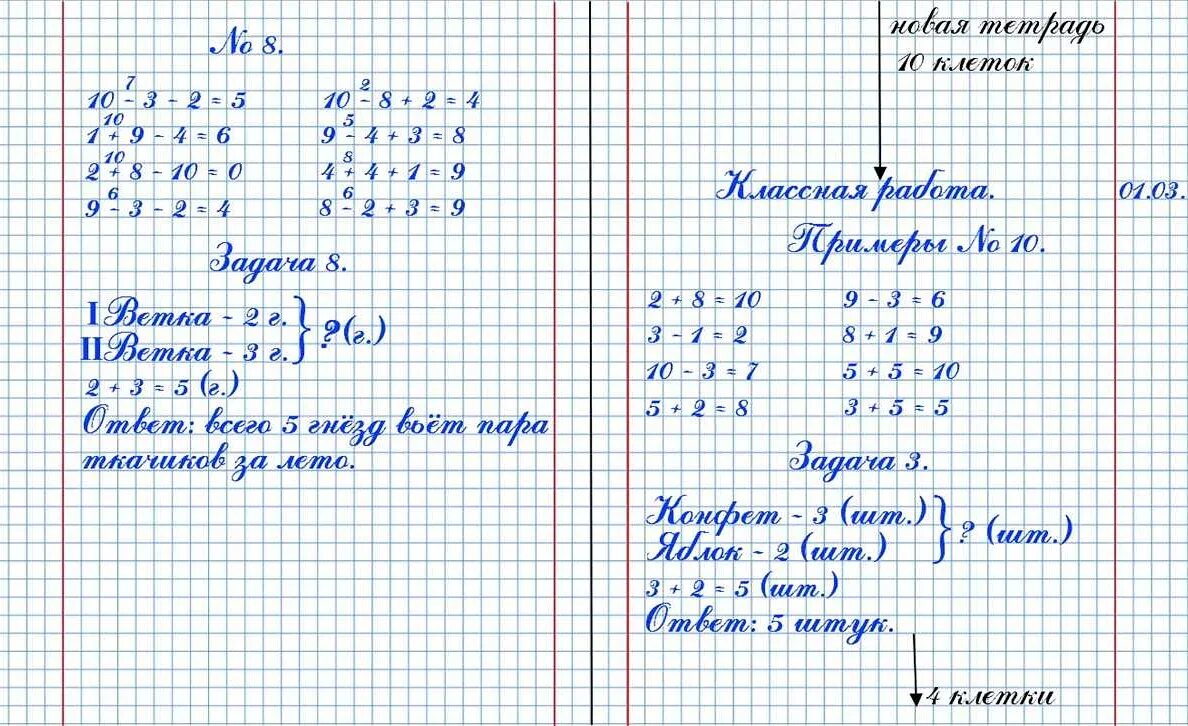 No 8.
7 2
10 - 3 - 2 = 5 10 - 8 + 2 = 4
10 5
1 + 9 - 4 = 6 9 - 4 + 3 = 8
10 8
2 + 8 - 10 = 0 4 + 4 + 1 = 9
6 6
9 - 3 - 2 = 4 8 - 2 + 3 = 9
Задача 8.
I Ветка - 2 г. } ?(г.)
II Ветка - 3 г.
2 + 3 = 5 (г.)
Ответ: всего 5 гнёзд вьёт пара
ткачиков за лето.
новая тетрадь
10 клеток
Классная работа. 01.03.
Примеры No 10.
2 + 8 = 10 9 - 3 = 6
3 - 1 = 2 8 + 1 = 9
10 - 3 = 7 5 + 5 = 10
5 + 2 = 8 3 + 5 = 5
Задача 3.
Конфет - 3 (шт.) } ? (шт.)
Яблок - 2 (шт.)
3 + 2 = 5 (шт.)
Ответ: 5 штук.
4 клетки